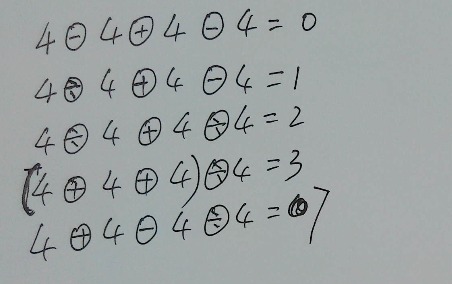 4⊖4⊕4⊖4=0
4⨸4⊕4⊖4=1
4⨸4⊕4⨸4=2
(4⊕4⊕4)⨸4=3
4⊕4⊖4⨸4=7